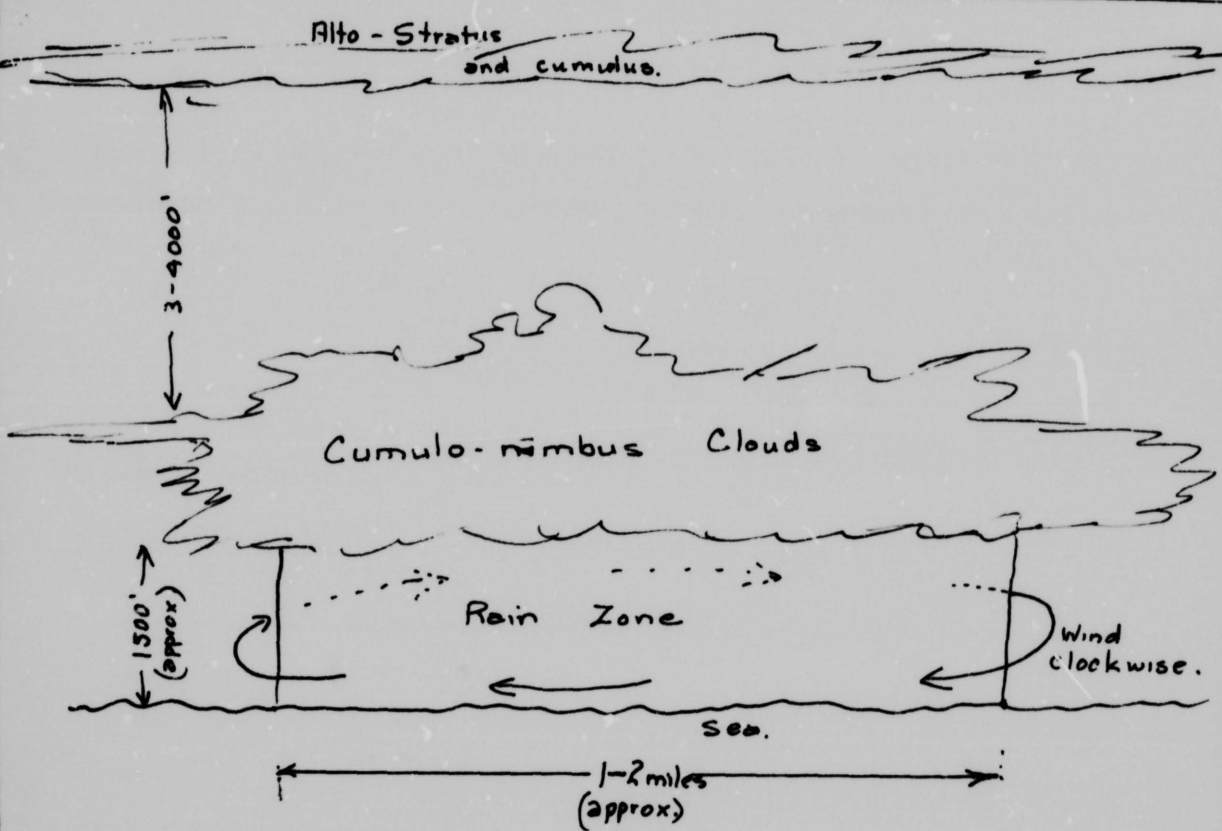 Alto-Stratus
and cumulus.
3-4000'
Cumulo-nimbus Clouds
1500'
(approx)
Rain Zone
Wind
clockwise.
Sea.
1-2 miles
(approx.)